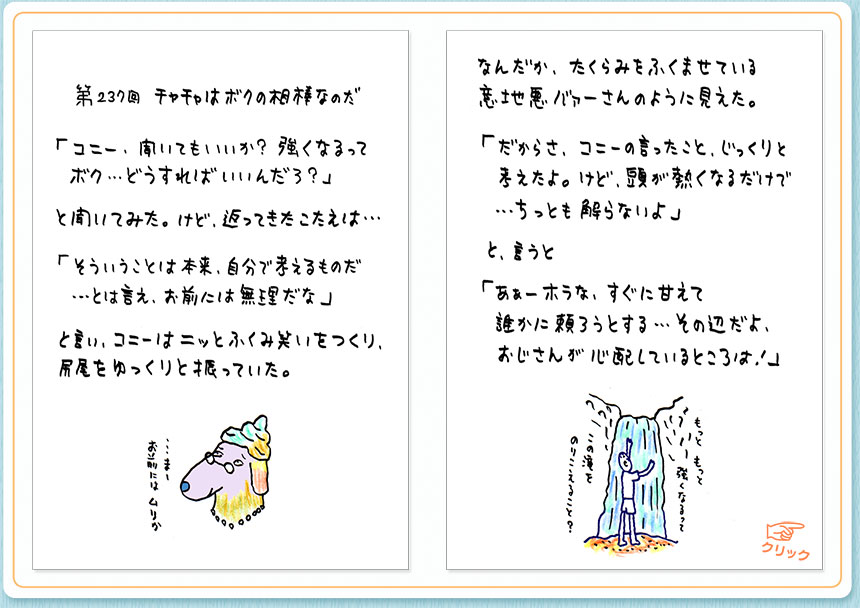 第237回 チャチャはボクの相棒なのだ
「コニー、聞いてもいいか？強くなるって
ボク…どうすればいいんだろ？」
と聞いてみた。けど、返ってきたこたえは…
「そういうことは本来、自分で考えるものだ
…とは言え、お前には無理だな」
と言い、コニーはニッとふくみ笑いをつくり、
尻尾をゆっくりと振っていた。
…まー
お前には ムリか
なんだか、たくらみをふくませている
意地悪バァーさんのように見えた。
「だからさ、コニーの言ったこと、じっくりと
考えたよ。けど、頭が熱くなるだけで
…ちっとも解らないよ」
と、言うと
「あぁーホラな、すぐに甘えて
誰かに頼ろうとする…その辺だよ、
おじさんが心配しているところは！」
もっと もっと
強くなるって
この滝を
のりこえること？
クリック